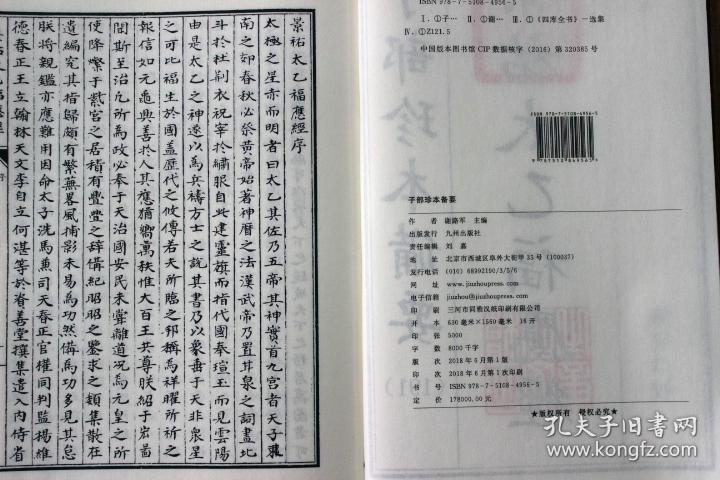 景祐太乙福應經序
太極之星赤而明者曰太乙其佐乃五帝其神實首九宮者天子觀
南之郊春秋必祭黃帝始著神曆之法漢武帝乃置甘泉之詞畫北
斗於杜荆衣祝宰於繡服自此建靈旗而指代國奉瑄玉而見雲陽
由是太乙之神遂以為兵禱方士之說其書乃以象垂于天非衆星
之可比福生於國盖歷代之攸傳若夫所臨之邦稱為祥曜所祈之
報信如元龜與善於人其應猶嚮萬秩惟大百王共尊朕紹于宏啚
閟斯至治凡所為政必奉于天治國安民未甞離道况為元皇之所
使降鑒于紫宮之居稽有豐豊之辞備紀昭昭之鑒求之類集散在
遺編究其指歸頗有繁蕪畧風捕影未易為功然備為功多見其怠
朕將親鑑亦應難用因命太子洗馬兼司天春正官權同判監楊維
德春正王立翰林天文李自立何湛等於資善堂撰集遣入內侍省
ISBN 978-7-5108-4956-5
Ⅰ. ①子… Ⅱ. ①谢… Ⅲ. ①《四库全书》—选集
Ⅳ. ①Z121.5
中国版本图书馆 CIP 数据核字（2016）第 320385 号
ISBN 978-7-5108-4956-5
9 787510 849565
子部珍本备要
作 者 谢路军 主编
出版发行 九州出版社
责任编辑 刘 嘉
地 址 北京市西城区阜外大街甲 35 号（100037）
发行电话 （010）68992190/3/5/6
网 址 www.jiuzhoupress.com
电子信箱 jiuzhou@jiuzhoupress.com
印 刷 三河市同雅汉纸印刷有限公司
开 本 630 毫米×1560 毫米 16 开
印 张 5000
字 数 8000 千字
版 次 2018 年 6 月第 1 版
印 次 2018 年 6 月第 1 次印刷
书 号 ISBN 978-7-5108-4956-5
定 价 178000.00 元
★版权所有 侵权必究★
孔夫子旧书网
kongfz.com